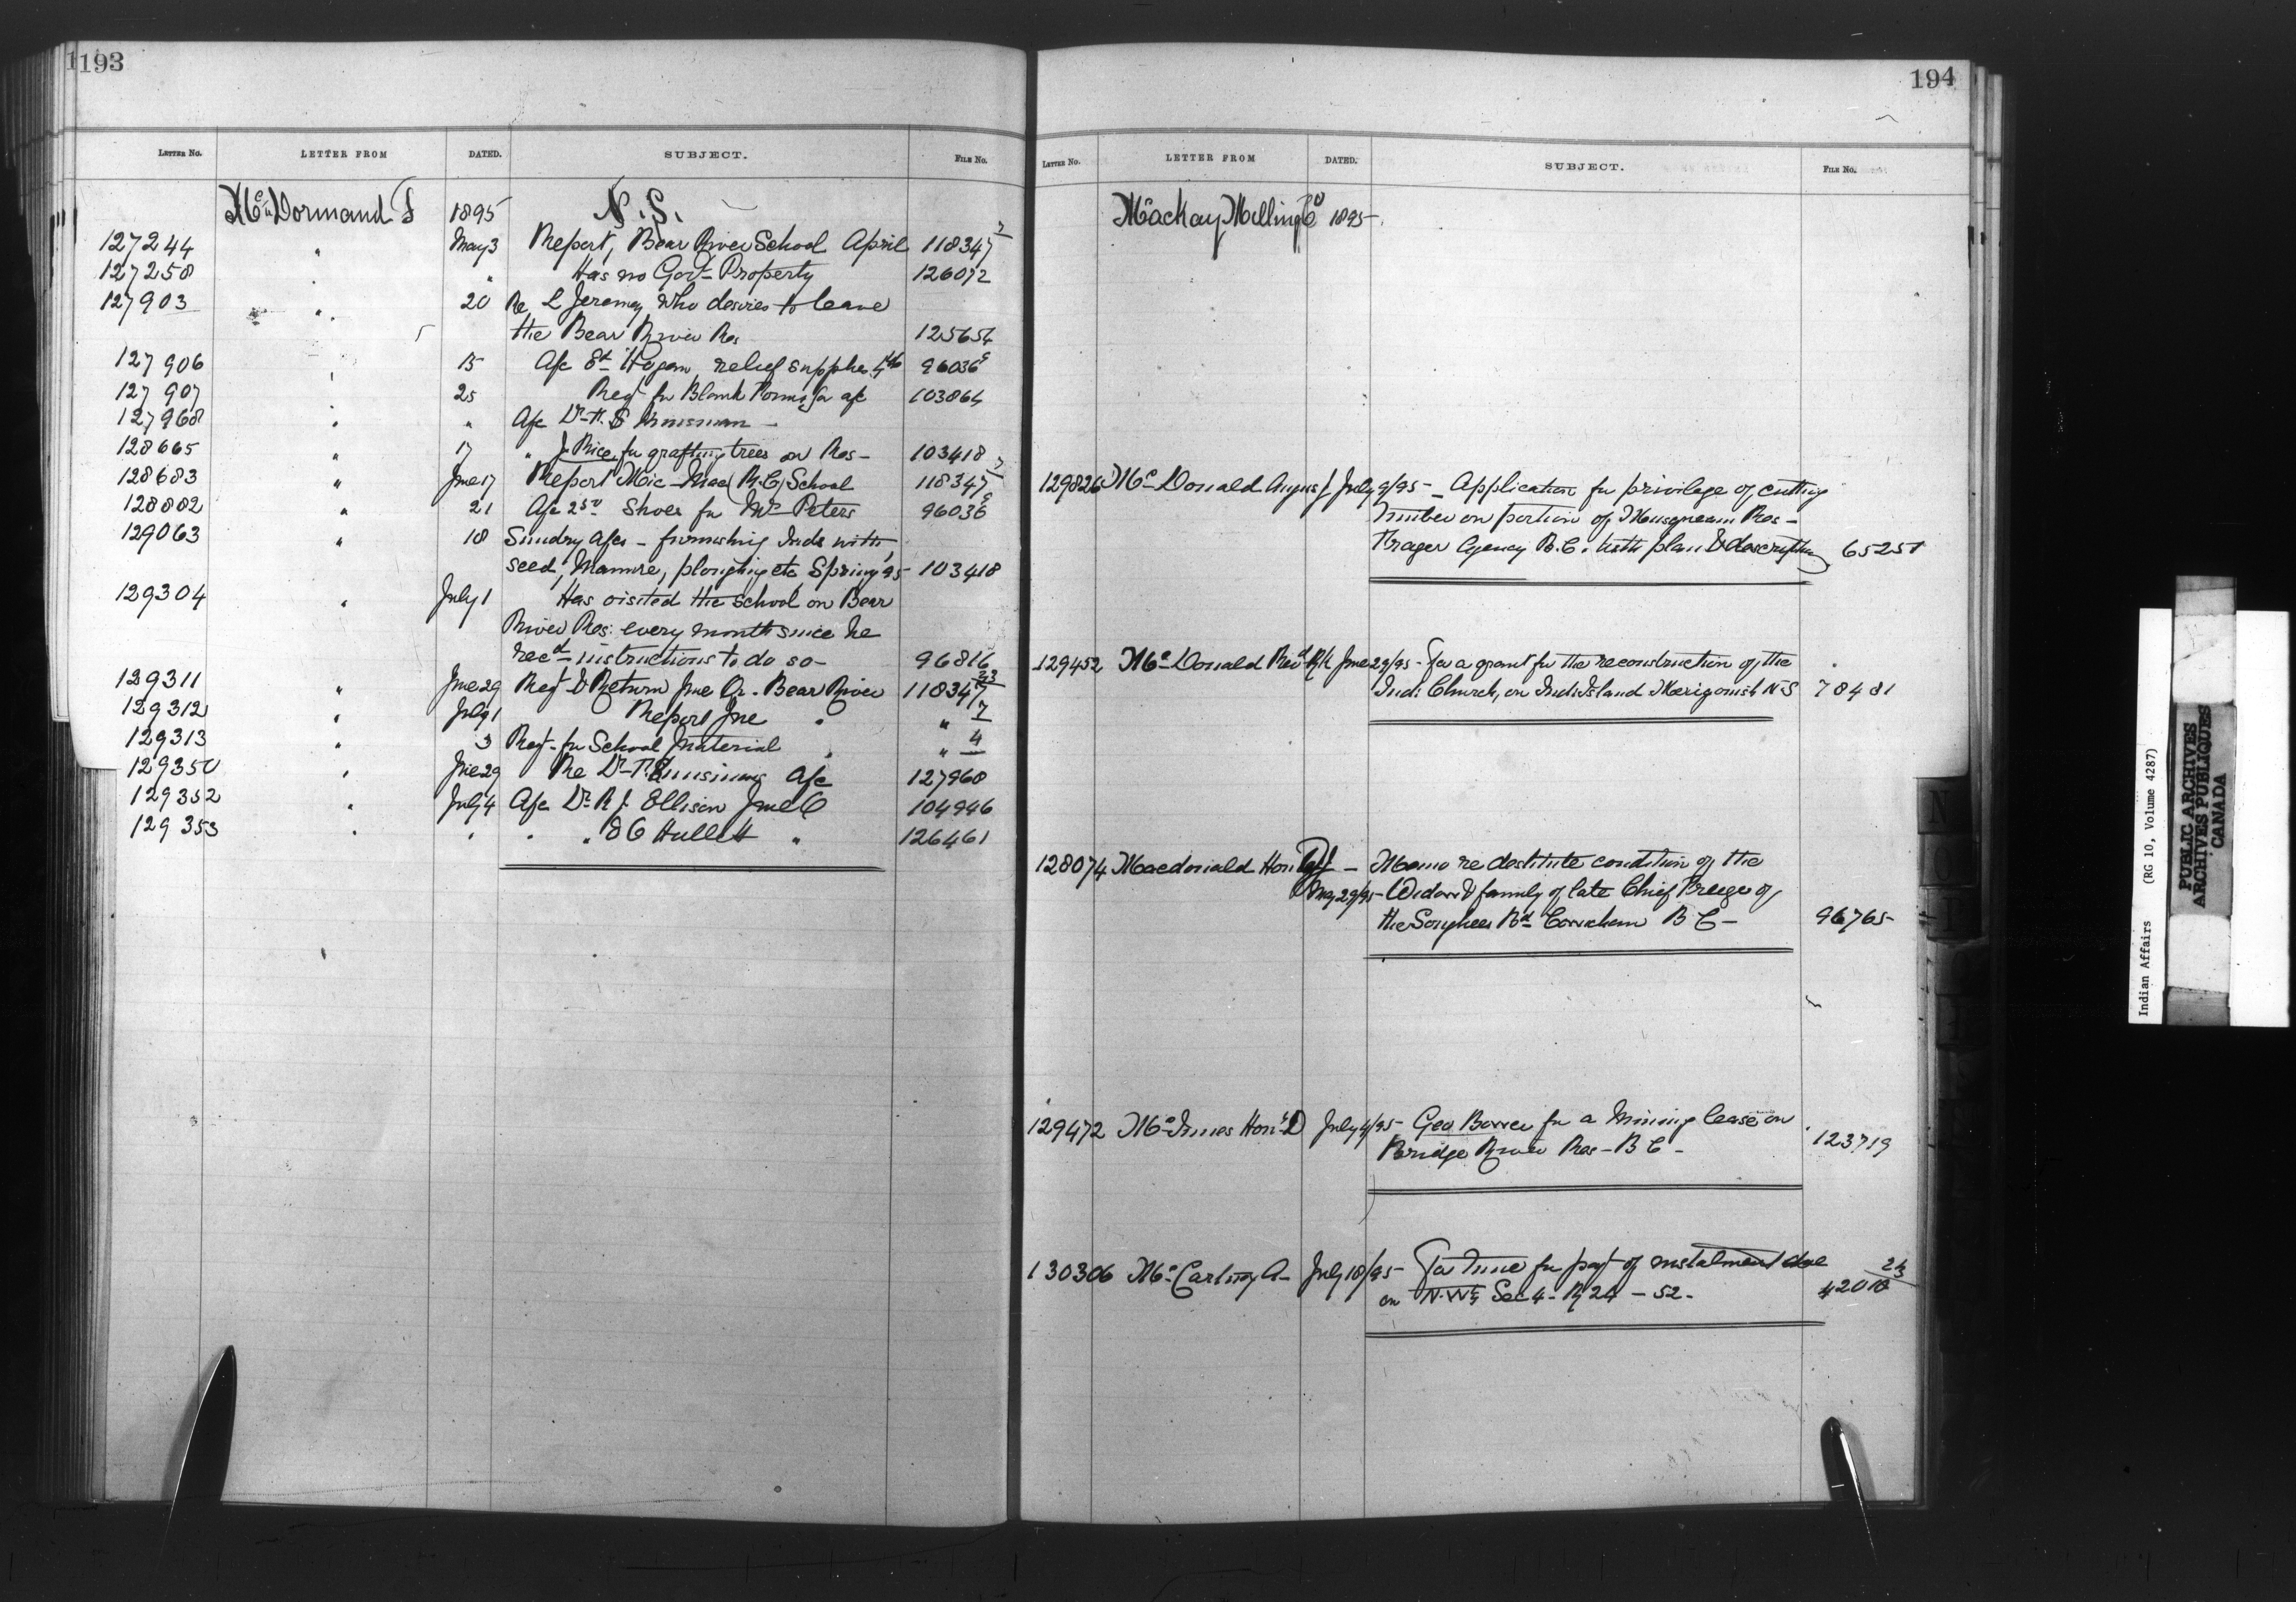 193
LETTER NO. LETTER FROM DATED. SUBJECT. FILE NO.
McDormand F 1895 N.S.
127244 " May 3 Report, Bear River School April 118347 7
127258 " " Has no Govt Property 126072
127903 " 20 Re L Jeremy, who desires to leave
the Bear River Res 125654
127906 " 15 A/c Ed Hogan, relief supplies 96036
127907 " 25 Reqt for Blank Forms for a/c 103864
127968 " " A/c Dr
128665 " 17 " J. Rice, for grafting trees on Res- 103418
128683 " June 17 Report Mic-Mac (R.C.) School 118347 7
128882 " 21 A/c Shoes for Mr Peters 96036
129063 " 18 Sundry A/cs - furnishing Inds with
seed, Manure, ploughing etc Spring 95 103418
129304 " July 1 Has visited the School on Bear
River Res. every month since he
recd instructions to do so- 96816
129311 " June 29 Reqt & Return June Qr. Bear River 118347 23
129312 " July 1 Report June " " 7
129313 " 3 Reqt for School Material " " 4
129350 " June 29 Re Dr A/c 127968
129352 " July 4 A/c Dr R J. Ellison June 104946
129353 " " " " 126461
194
LETTER NO. LETTER FROM DATED. SUBJECT. FILE NO.
Mackay Milling Co 1895-
129826 McDonald Angus J July 9/95 - Application for privilege of cutting
timber on portion of Musqueam Res-
Fraser Agency B.C. with plan & description 65251
129452 McDonald Revd R K June 29/95 - For a grant for the reconstruction of the
Ind: Church, on Ind: Island Merigomish N S 78481
128074 Macdonald Hon - Memo re destitute condition of the
May 29/95 - Widow & family of late Chief of
the Songhees Bd Cowichan B C - 96765
129472 McInnes Hon D July 4/95 - Geo for a Mining lease on
Bridge River Res - B C - 123719
130306 McCartney A - July 18/95 - For time for payt of instalment due 23
on N.W¼ Sec 4 - R 24 - 52. 42018
Indian Affairs (RG 10, Volume 4287)
PUBLIC ARCHIVES
ARCHIVES PUBLIQUES
CANADA